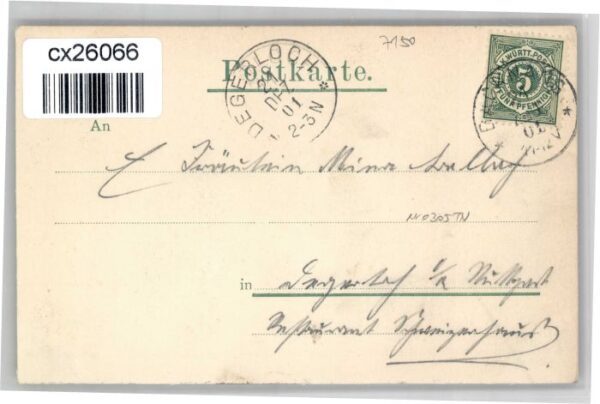 cx26066
7150
Postkarte.
DEGERLOCH
DEZ
01
2-3N
K. WÜRTT. POST
5
FÜNF PFENNIG
01
An
Fräulein Mina
in Degerloch b/ Stuttgart
Restaurant Schweizerhaus